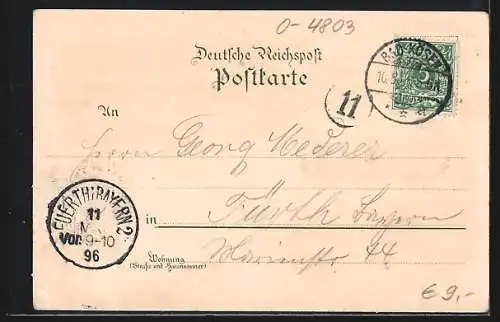 0-4803
Deutsche Reichspost
Postkarte
BAD-KÖSEN
11
An
Herrn Georg Mederer
in Fürth Bayern
Marienstr 44
Wohnung
(Straße und Hausnummer)
FUERTH(BAYERN 2.
11
VOR 9-10
96
€9,-